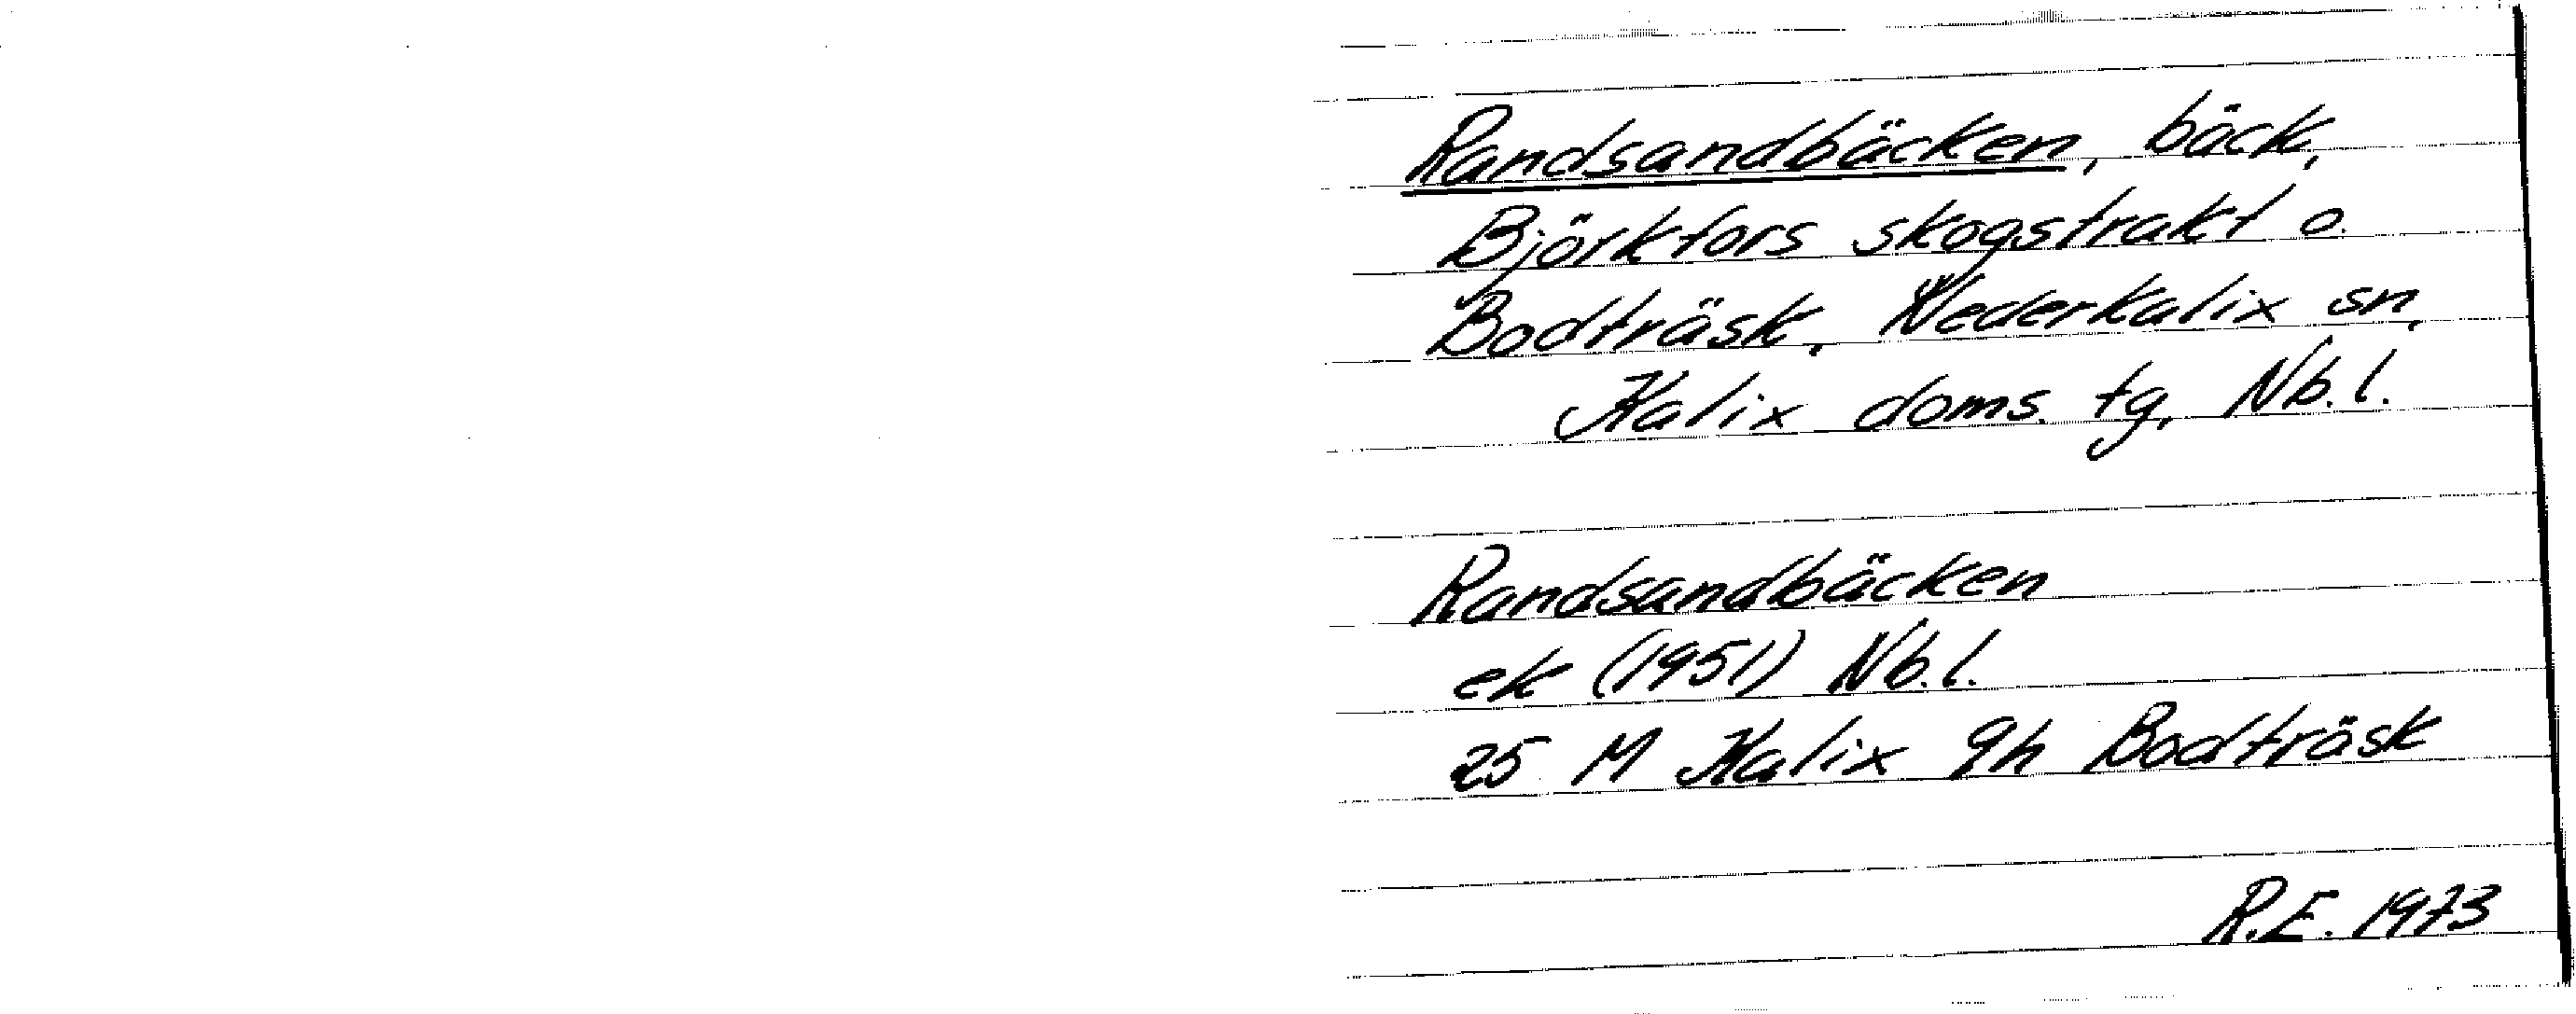 Randsandbäcken, bäck,
Björkfors skogstrakt o.
Bodträsk, Nederkalix sn,
Kalix doms. tg, Nb.l.
Randsandbäcken
ek (1951) Nb.l.
25 M Kalix 9h Bodträsk
R.E. 1973